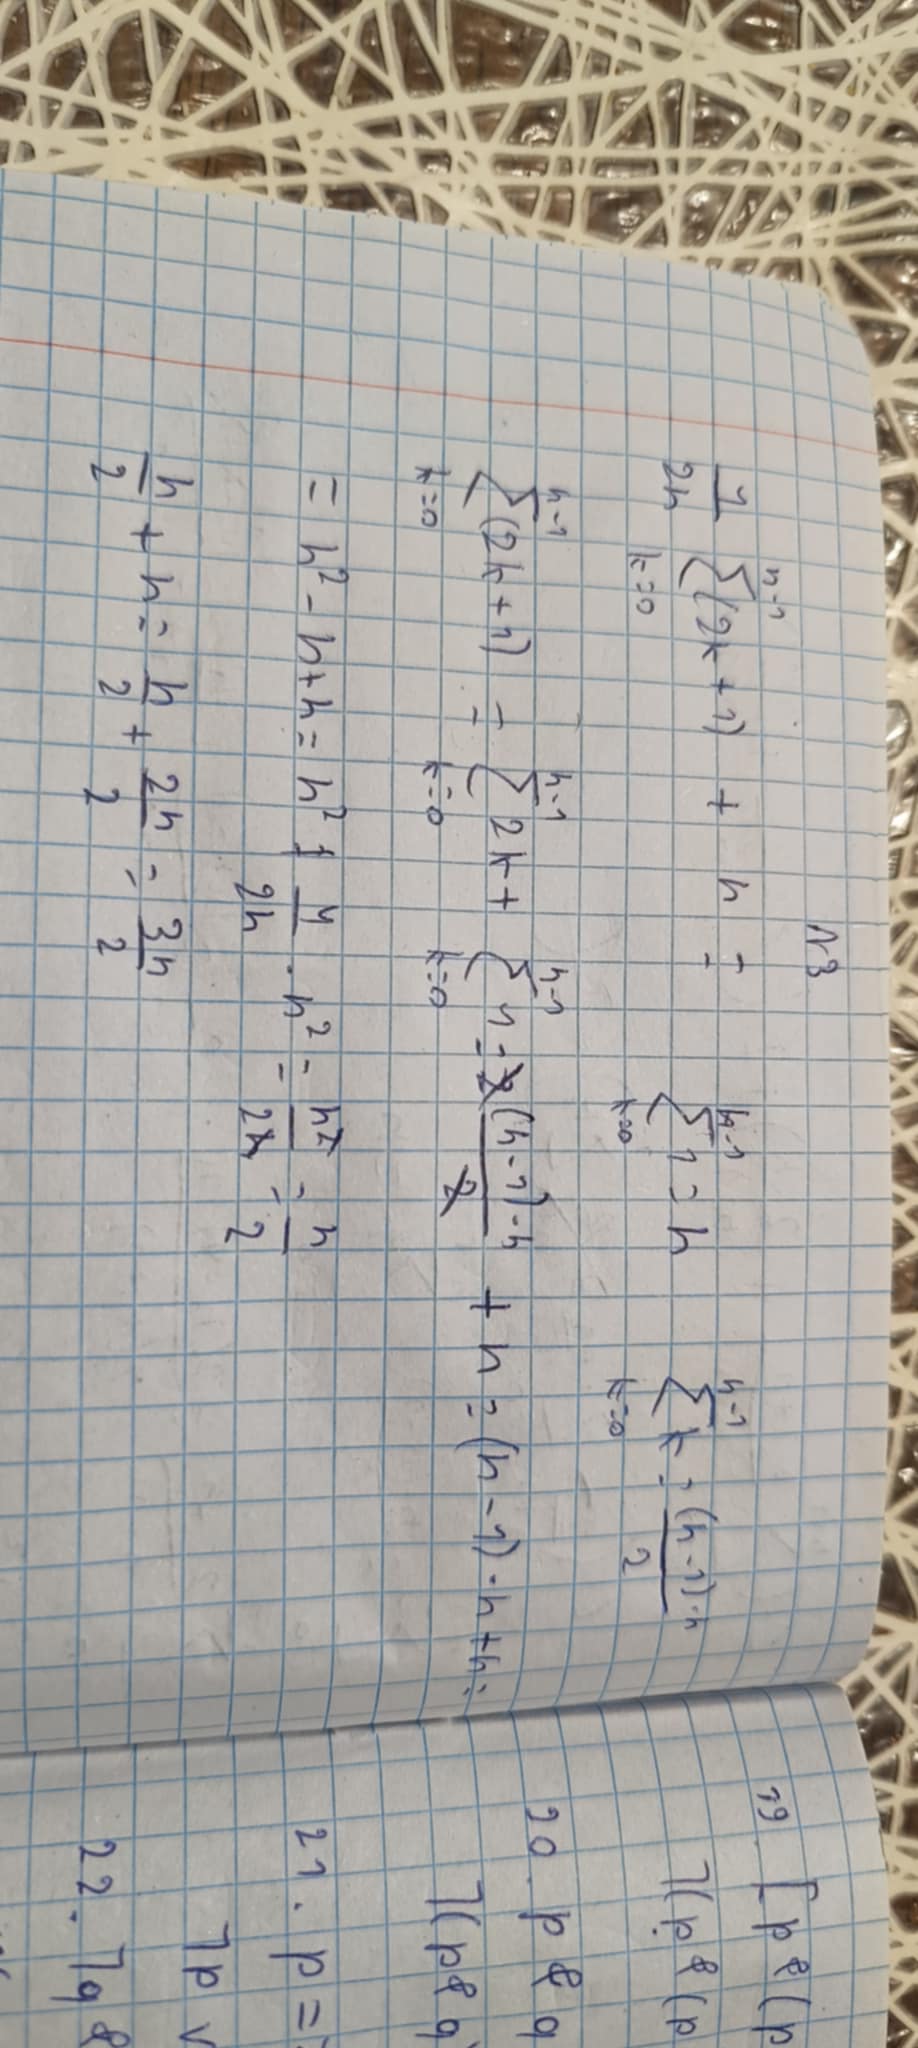 N3
1/2n ∑_{k=0}^{n-1} (2k+1) + n = ∑_{k=0}^{n-1} 1 = n ∑_{k=0}^{n-1} k = (n-1)·n/2
∑_{k=0}^{n-1} (2k+1) = ∑_{k=0}^{n-1} 2k + ∑_{k=0}^{n-1} 1 = 2 (n-1)·n/2 + n = (n-1)·n+n=
= n²-n+n = n² 1/2n · n² = n²/2n = n/2
n/2 + n = n/2 + 2n/2 = 3n/2
19. [p & (p
7(p & (p
20. p & q
7(p & q
21. p =
7p v
22. 7q &